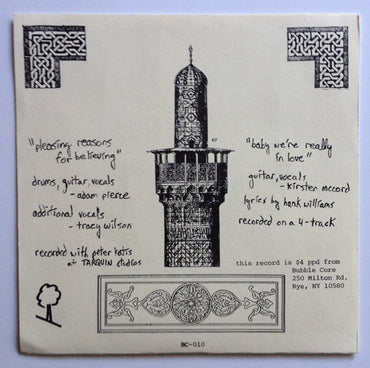 "pleasing reasons
for believing"
drums, guitar, vocals
- adam pierce
additional vocals
- tracy wilson
recorded with peter katis
at TARQUIN studios
"baby we're really
in love"
guitar, vocals
- kirsten mccord
lyrics by hank williams
recorded on a 4-track
this record is $4 ppd from
Bubble Core
250 Milton Rd.
Rye, NY 10580
BC-010